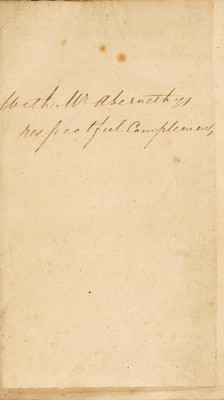 With Mr Abernethys
respectful Complements